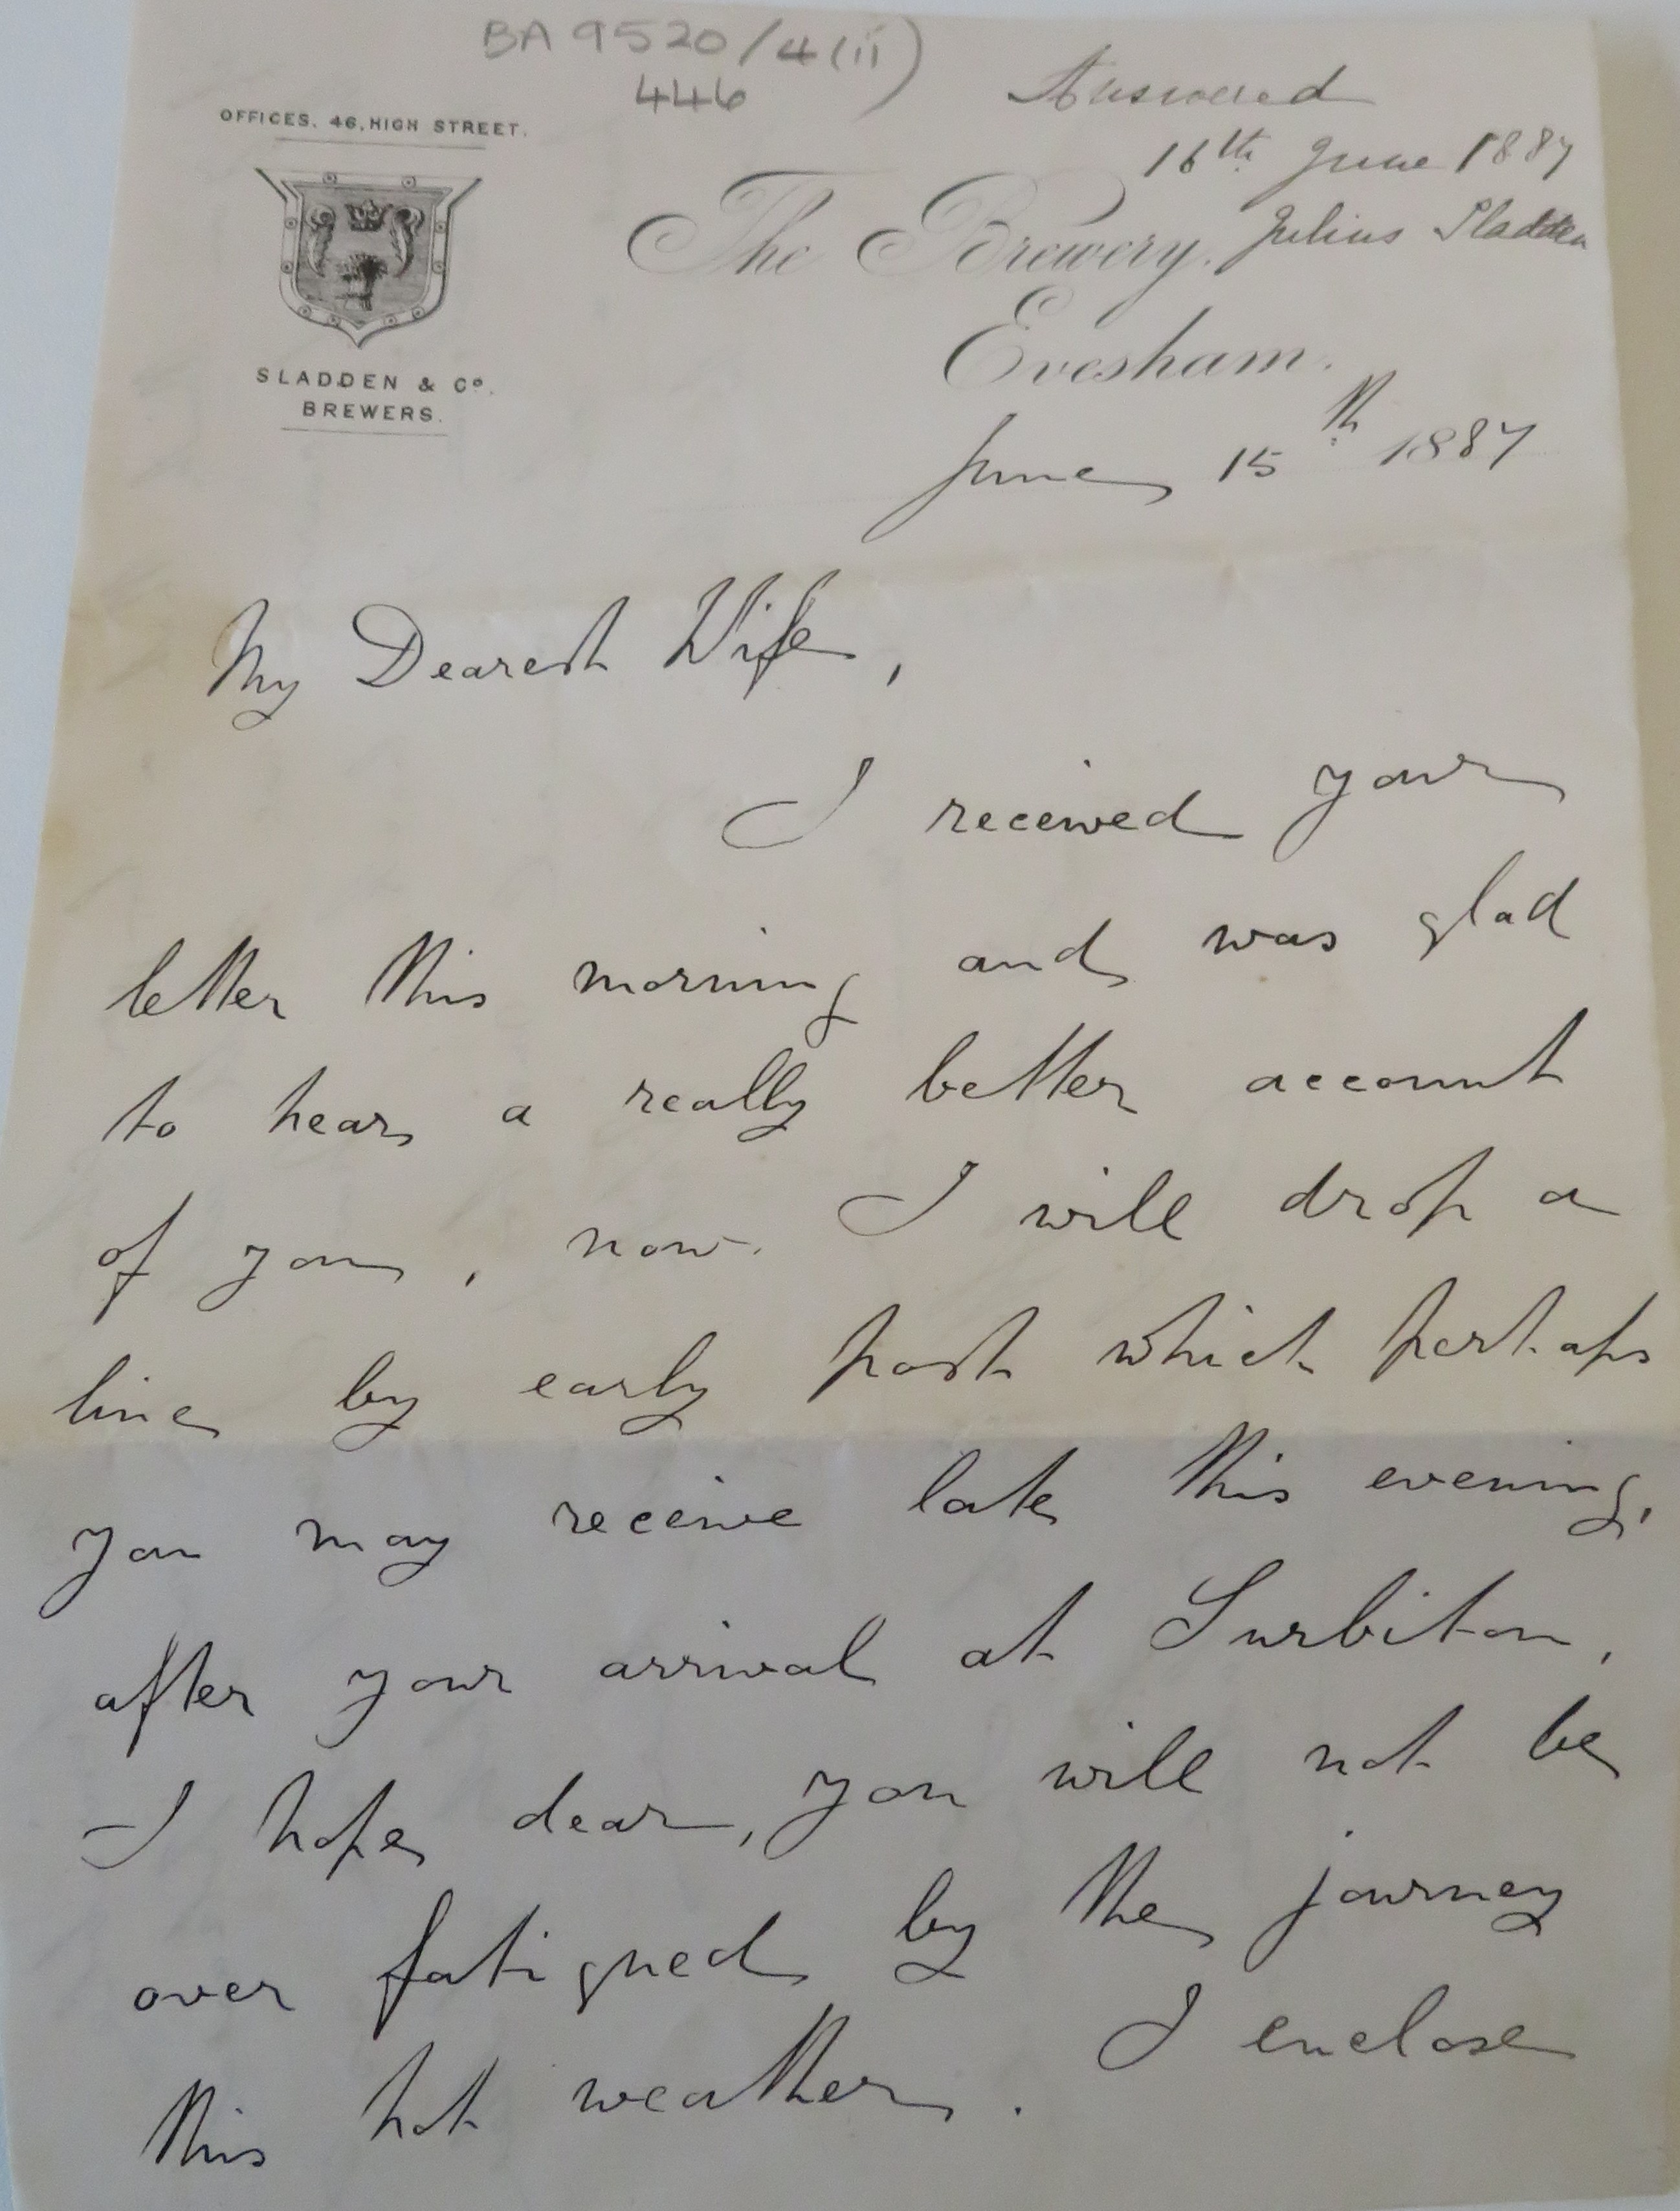 BA 9520/4(ii)
446
Answered
16th June 1887
Julius Sladden
OFFICES. 46, HIGH STREET.
SLADDEN & Co.
BREWERS.
The Brewery,
Evesham.
June 15th 1887
My Dearest Wife,
I received your
letter this morning and was glad
to hear a really better account
of you, now. I will drop a
line by early post which perhaps
you may receive late this evening,
after your arrival at Surbiton,
I hope dear, you will not be
over fatigued by the journey
this hot weather. I enclose